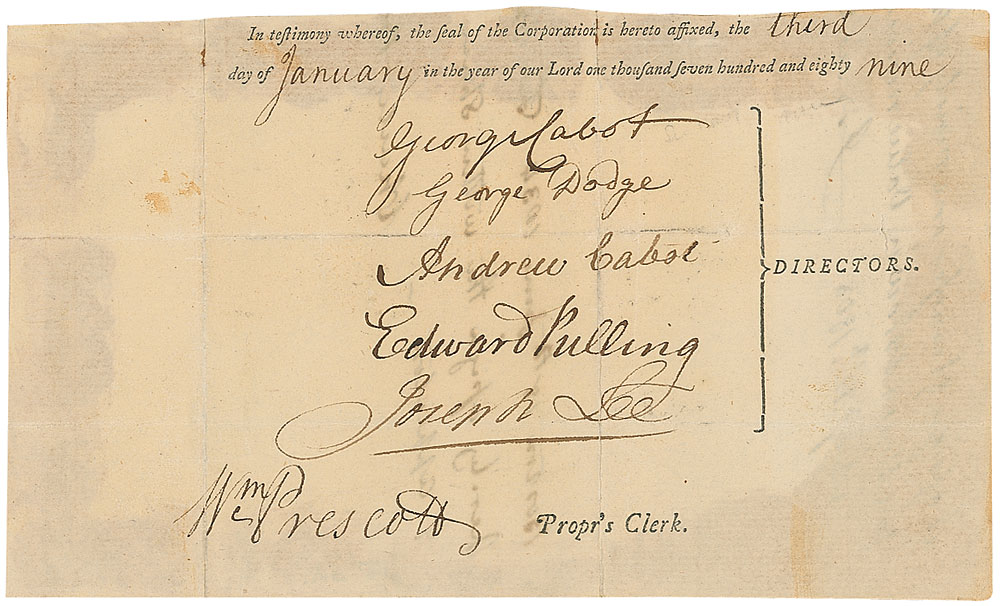 In teſtimony whereof, the ſeal of the Corporation is hereto affixed, the third
day of January in the year of our Lord one thouſand ſeven hundred and eighty nine
George Cabot
George Dodge
Andrew Cabot
DIRECTORS.
Edward Pulling
Joseph Lee
Wm Prescott Propr's Clerk.